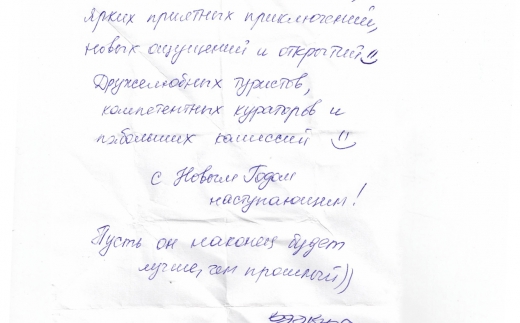 ярких приятных приключений,
новых ощущений и открытий
Дружелюбных туристов,
компетентных кураторов и
побольших комиссий
с Новым Годом
наступающим!
Пусть он наконец будет
лучше, чем прошлый))